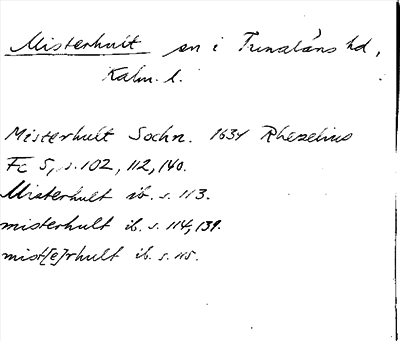 Misterhult sn i Tunaläns hd,
Kalm. l.
Misterhult Sochn. 1634 Rhezelius
Fc 5, s. 102, 112, 140.
Misterhult ib. s. 113.
misterhult ib. s. 114, 139.
mist[e]rhult ib. s. 115.